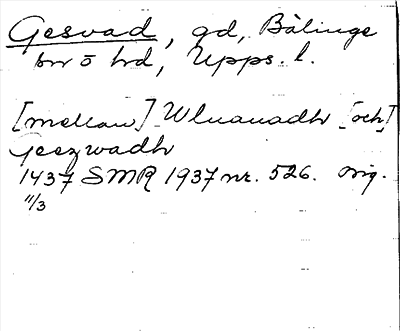 Gesvad, gd, Bälinge
sn o hd, Upps. l.
[mellan] Wluauadh [och]
Geezwadh
1437 SMR 1937 nr. 526. orig.
11/3